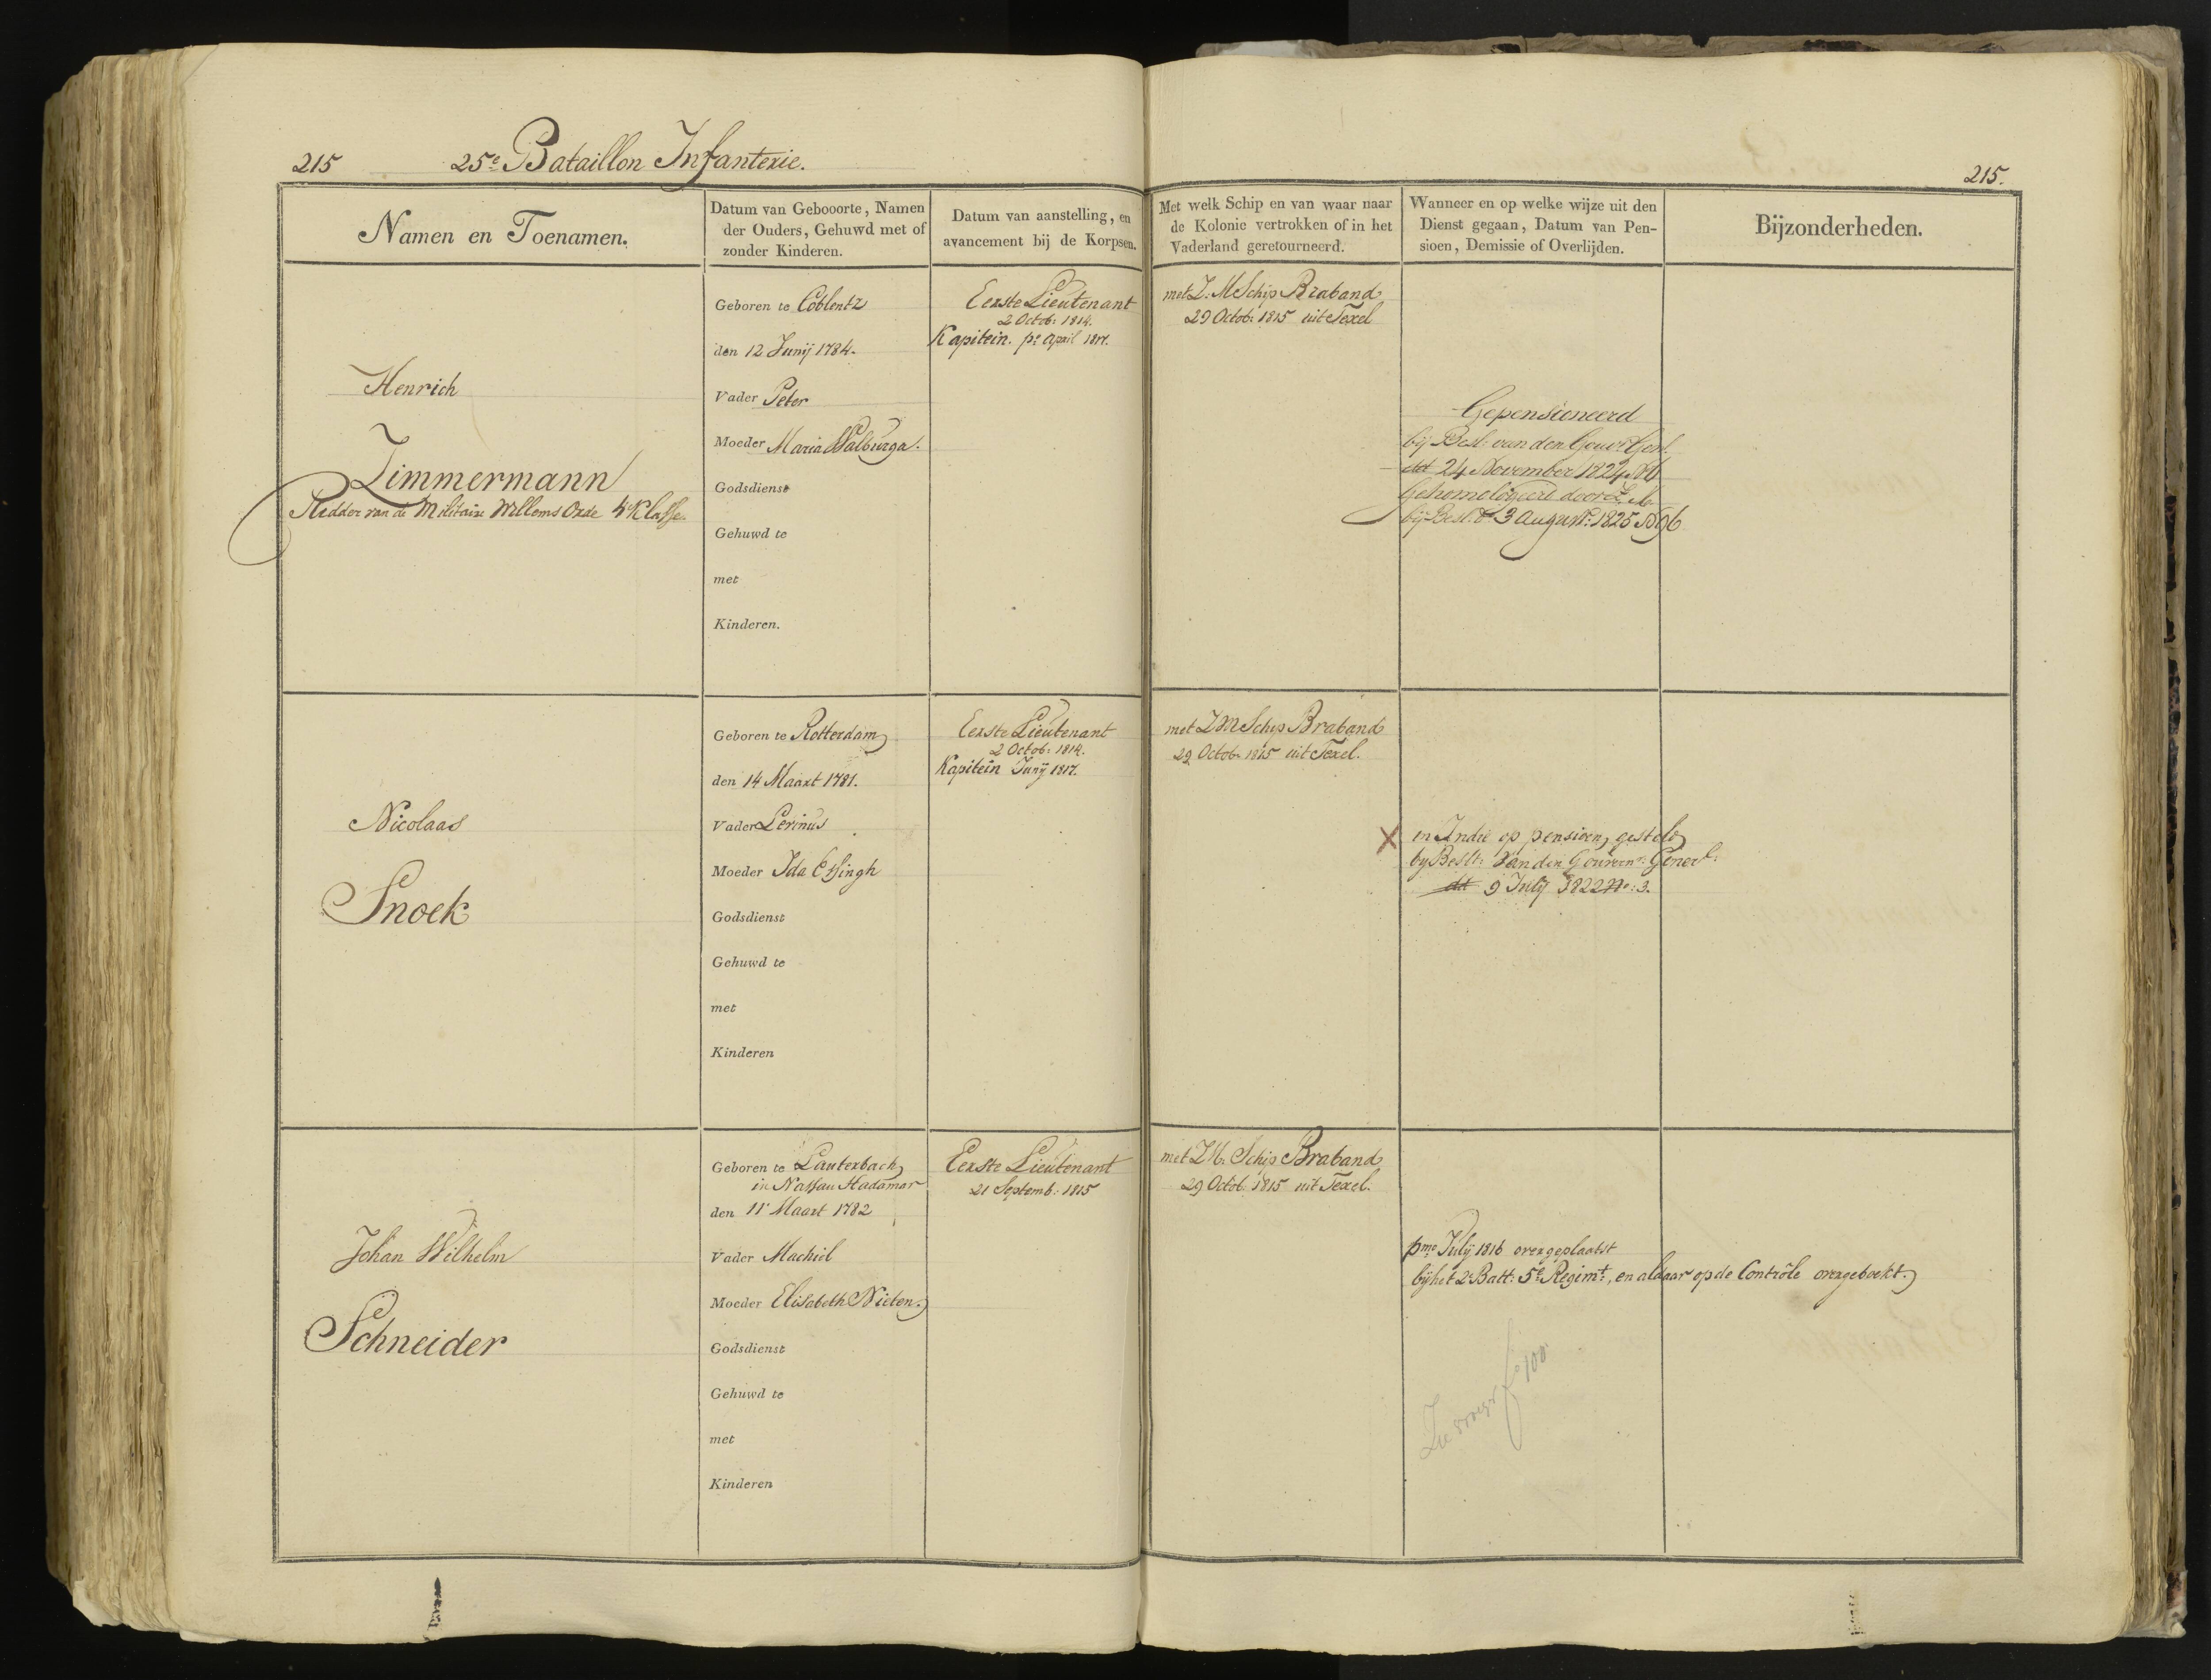 215
25e Bataillon Infanterie.
215.
Namen en Toenamen.
Datum van Gebooorte, Namen
der Ouders, Gehuwd met of
zonder Kinderen.
Datum van aanstelling, en
avancement bij de Korpsen.
Met welk Schip en van waar naar
de Kolonie vertrokken of in het
Vaderland geretourneerd.
Wanneer en op welke wijze uit den
Dienst gegaan, Datum van Pen-
sioen, Demissie of Overlijden.
Bijzonderheden.
Henrich
Zimmermann
Ridder van de Militaire Willems Orde 4e Klasse.
Geboren te Coblentz
den 12 Junij 1784.
Vader Peter
Moeder Maria Walburga.
Godsdienst
Gehuwd te
met
Kinderen.
Eerste Lieutenant
2 Octob: 1814.
Kapitein. po April 1817.
met Z: M Schip Braband
29 Octob: 1815 uit Texel
Gepensioneerd
bij Besl: van den Gouvr Genl.
dd 24 November 1824 No 6
Gehomologeerd door Z. M.
bij Besl. d. 3 August: 1825 No 96
Nicolaas
Snoek
Geboren te Rotterdam
den 14 Maart 1781.
Vader Perinus
Moeder Ida Essingh
Godsdienst
Gehuwd te
met
Kinderen
Eerste Lieutenant
2 Octob: 1814.
Kapitein Junij 1817.
met Z M Schip Braband
29 Octob. 1815 uit Texel.
X in Indie op pensioen gesteld
by Beslt: van den Gouvern: Generl:
dd 9 July 1822 No: 3.
Johan Wilhelm
Schneider
Geboren te Lauterbach
in Nassau Hadamar
den 11 Maart 1782
Vader Machiel
Moeder Elisabeth Nieten.
Godsdienst
Gehuwd te
met
Kinderen
Eerste Lieutenant
21 Septemb: 1815
met Z M. Schip Braband
29 Octob. 1815 uit Texel.
pmo Julij 1816 overgeplaatst
bij het 2e Batt: 5e Regimt:, en aldaar op de Contrôle overgeboekt.
Zie fo 100